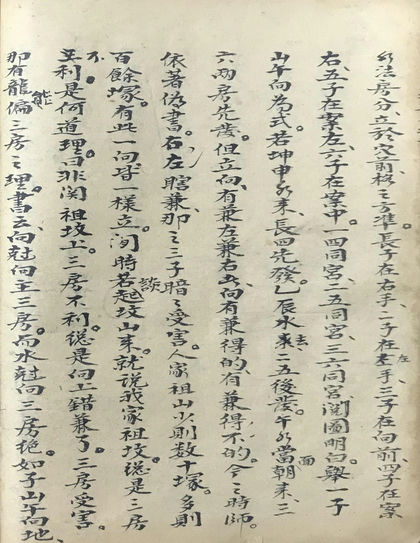 水法房分、立於穴前格之為準。長子在右手、二子在左手三子在向前、四子在案
右、五子在案左、六子在案中。一四同宮、二五同宮、三六同宮、閱圖明白、舉一子
山午向為式。若坤申水來、長四先發。乙辰水來去、二五後發。午水當面朝來、三
六兩房先發。但立向有兼左兼右、此向有兼得的、有兼得不的。今之時師。
依著偽書。右左瞎兼、那之三子暗之受害。人家祖山火則數十塚。多則
百餘塚。有此一向皆一樣立。閒時若談起坟山來、就說我家祖坟總是三房
不
主利是何道理。曰非関祖坟上。三房不利、總是向上錯兼了。三房受害。
那有龍能偏三房之理。書云、向尅向主三房。而水尅向三房絕。如子山午向地、